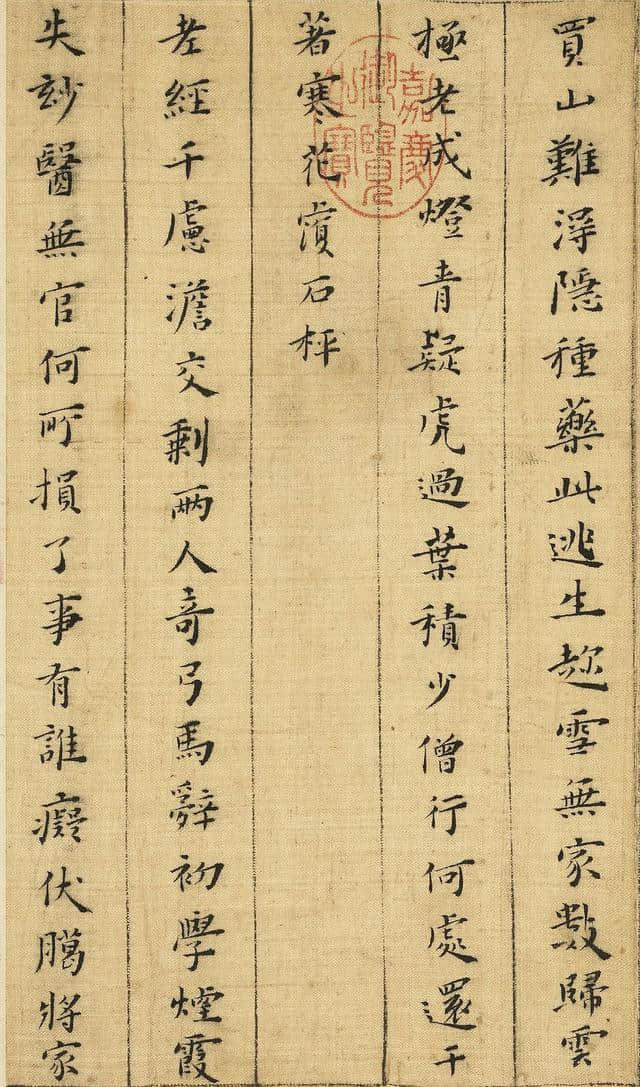 買山難淂隠種藥此逃生趂雪無家數歸雲
極老成燈青疑虎過葉積少僧行何處還千
著寒花石枰
老經千慮澹交剩兩人奇弓馬辭初學煙霞
失玅醫無官何所損了事有誰癡伏臈將家
嘉慶御覽之寶